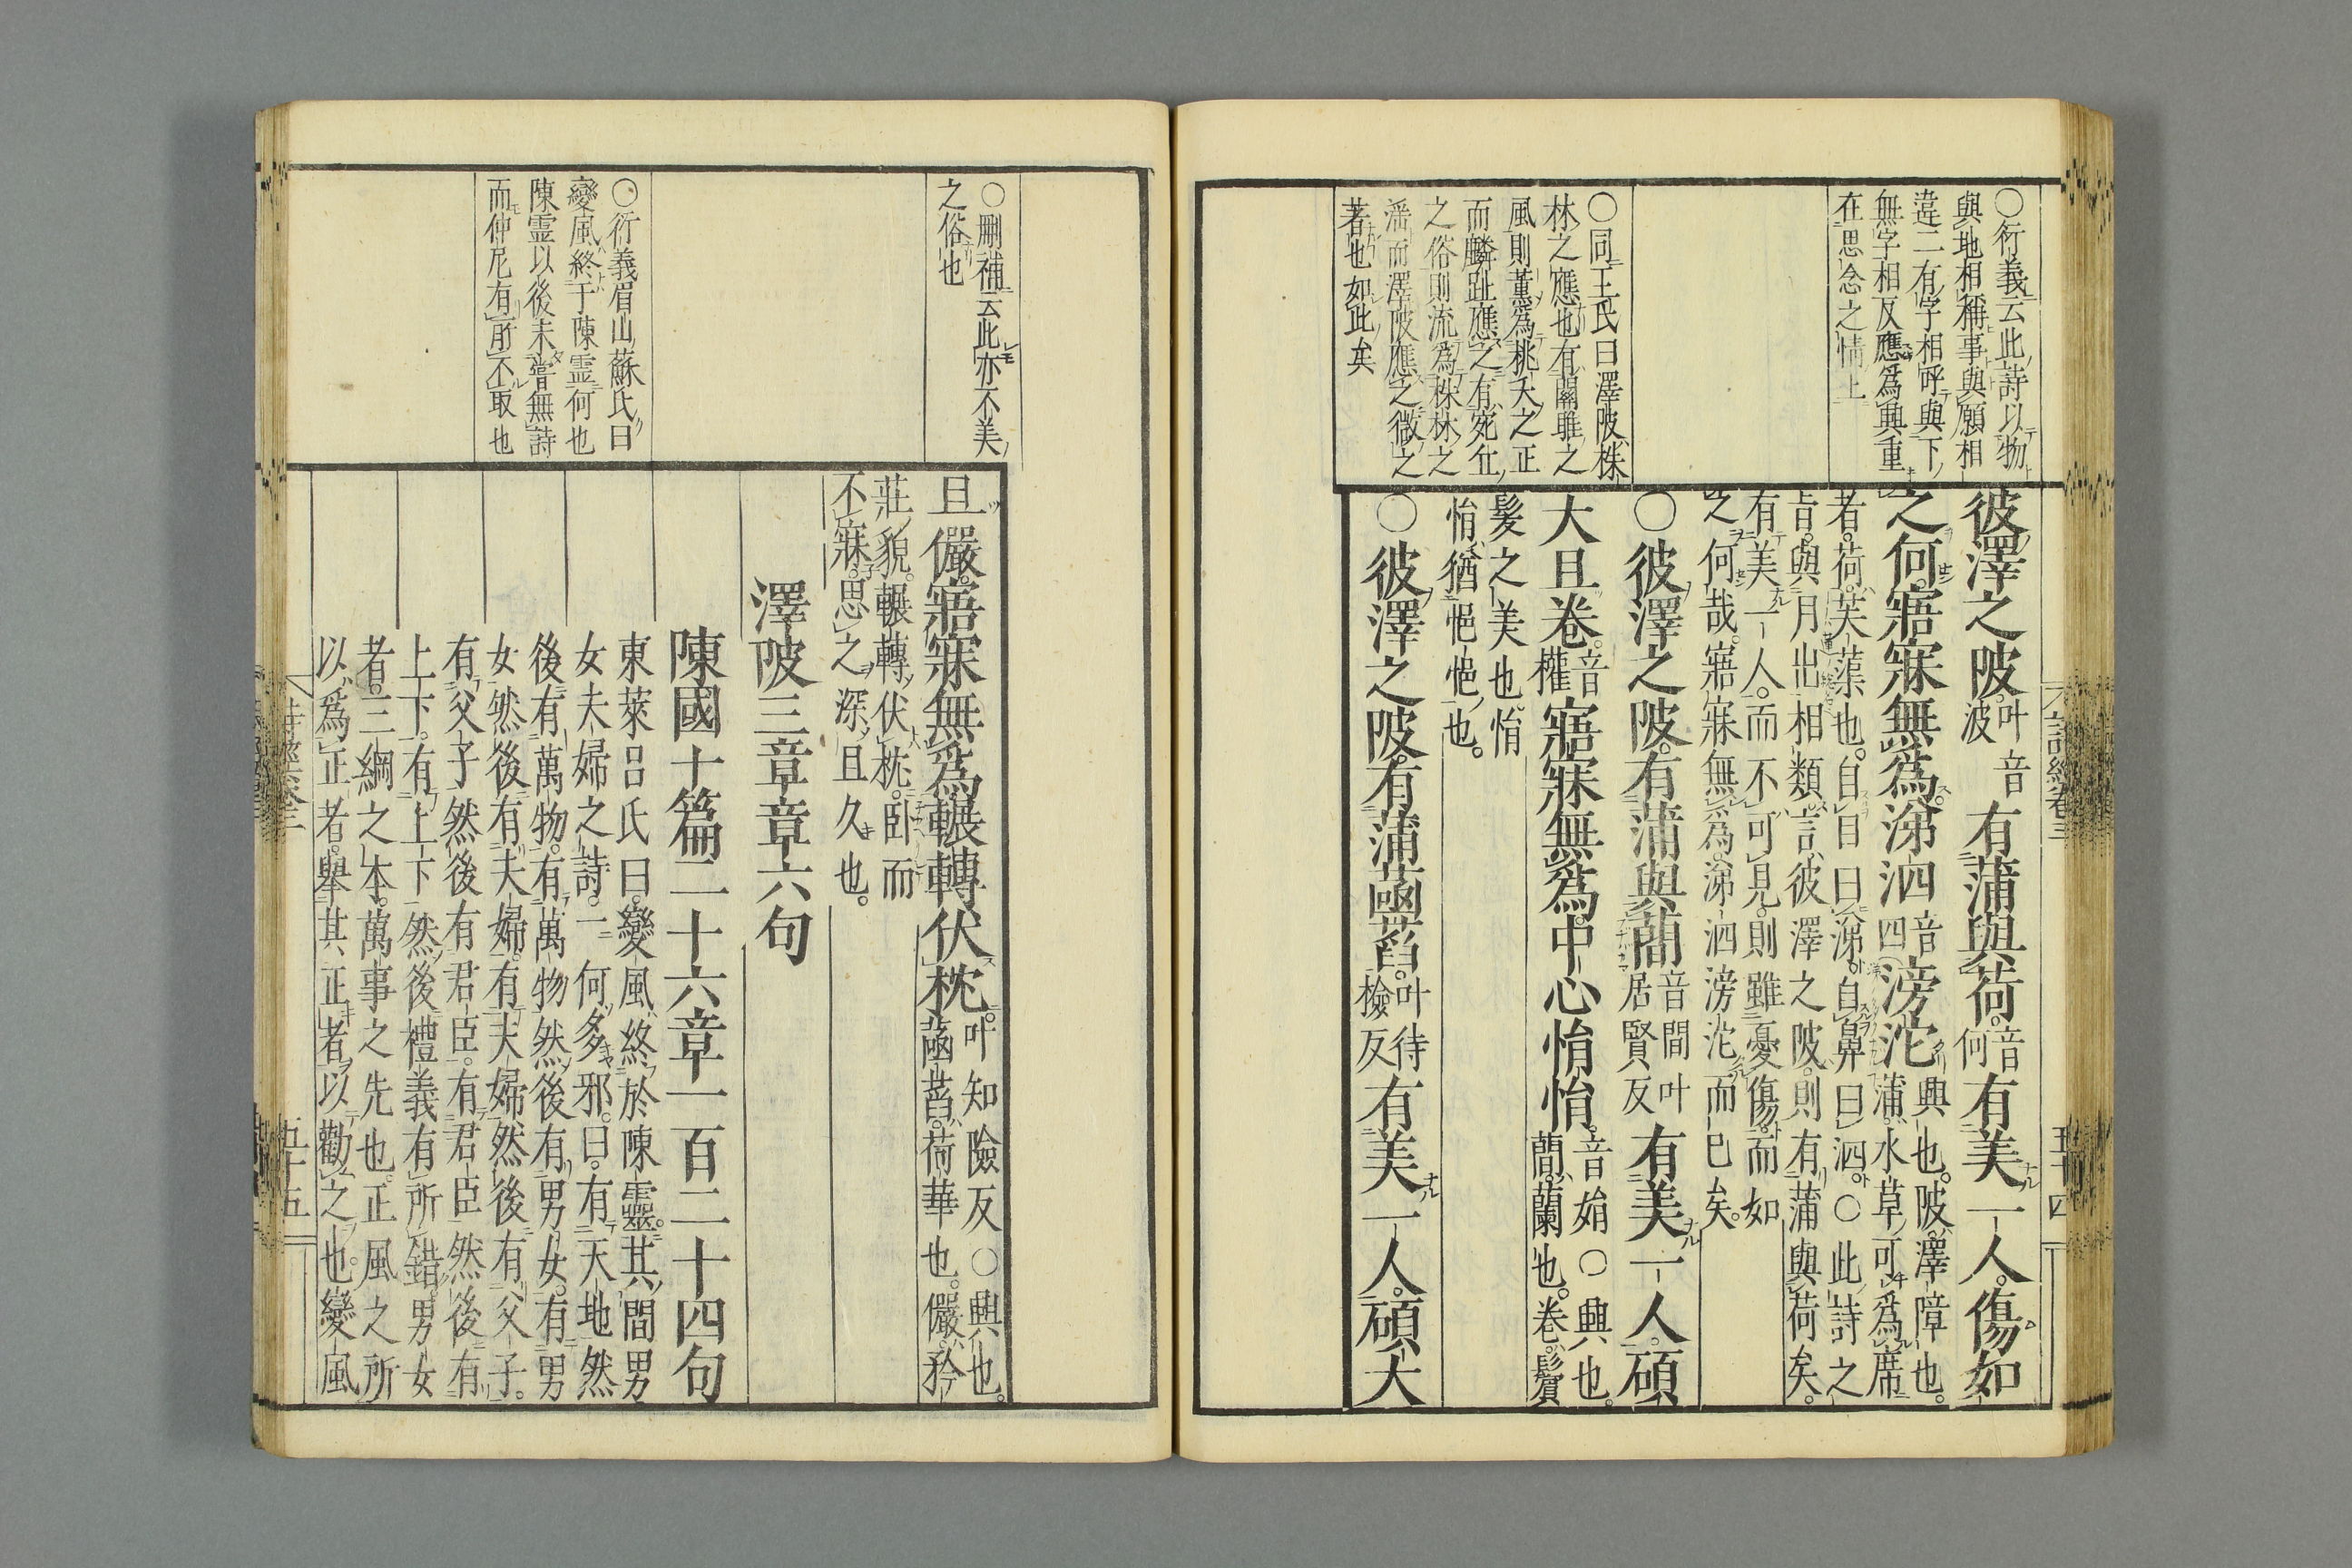 ○衍義云此詩以物
與地相稱事與願相
違二有字相呼與下
無字相反應爲興重
在思念之情上
○同王氏曰澤陂株
林之應也有關雎之
風則薰爲桃夭之正
而麟趾應之有宛丘
之俗則流爲株林之
淫而澤陂應之微之
著也如此矣
詩經卷三
五十四
彼澤之陂叶音波有蒲與荷音何有美一人傷如
之何寤寐無爲涕泗音四滂沱興也陂澤障也蒲水草可爲席
者荷芙蕖也自目曰涕自鼻曰泗○此詩之
旨與月出相類言彼澤之陂則有蒲與荷矣
有美一人而不可見則雖憂傷而如
之何哉寤寐無爲涕泗滂沱而已矣
○彼澤之陂有蒲與蕑音間叶居賢反有美一人碩
大且卷音權寤寐無爲中心悁悁音娟○興也蕑蘭也卷鬢
髮之美也悁
悁猶悒悒也
○彼澤之陂有蒲菡萏叶待檢反有美一人碩大
○刪補云此亦不美
之俗也
○衍義眉山蘇氏曰
變風終于陳霊何也
陳霊以後未甞無詩
而仲尼有所不取也
且儼寤寐無爲輾轉伏枕叶知險反○興也菡萏荷華也儼矜
莊貌輾轉伏枕臥而
不寐思之深且久也
澤陂三章章六句
陳國十篇二十六章一百二十四句
東萊呂氏曰變風終於陳靈其間男
女夫婦之詩一何多邪曰有天地然
後有萬物有萬物然後有男女有男
女然後有夫婦有夫婦然後有父子
有父子然後有君臣有君臣然後有
上下有上下然後禮義有所錯男女
者三綱之本萬事之先也正風之所
以爲正者舉其正者以勸之也變風
詩經卷三
五十五